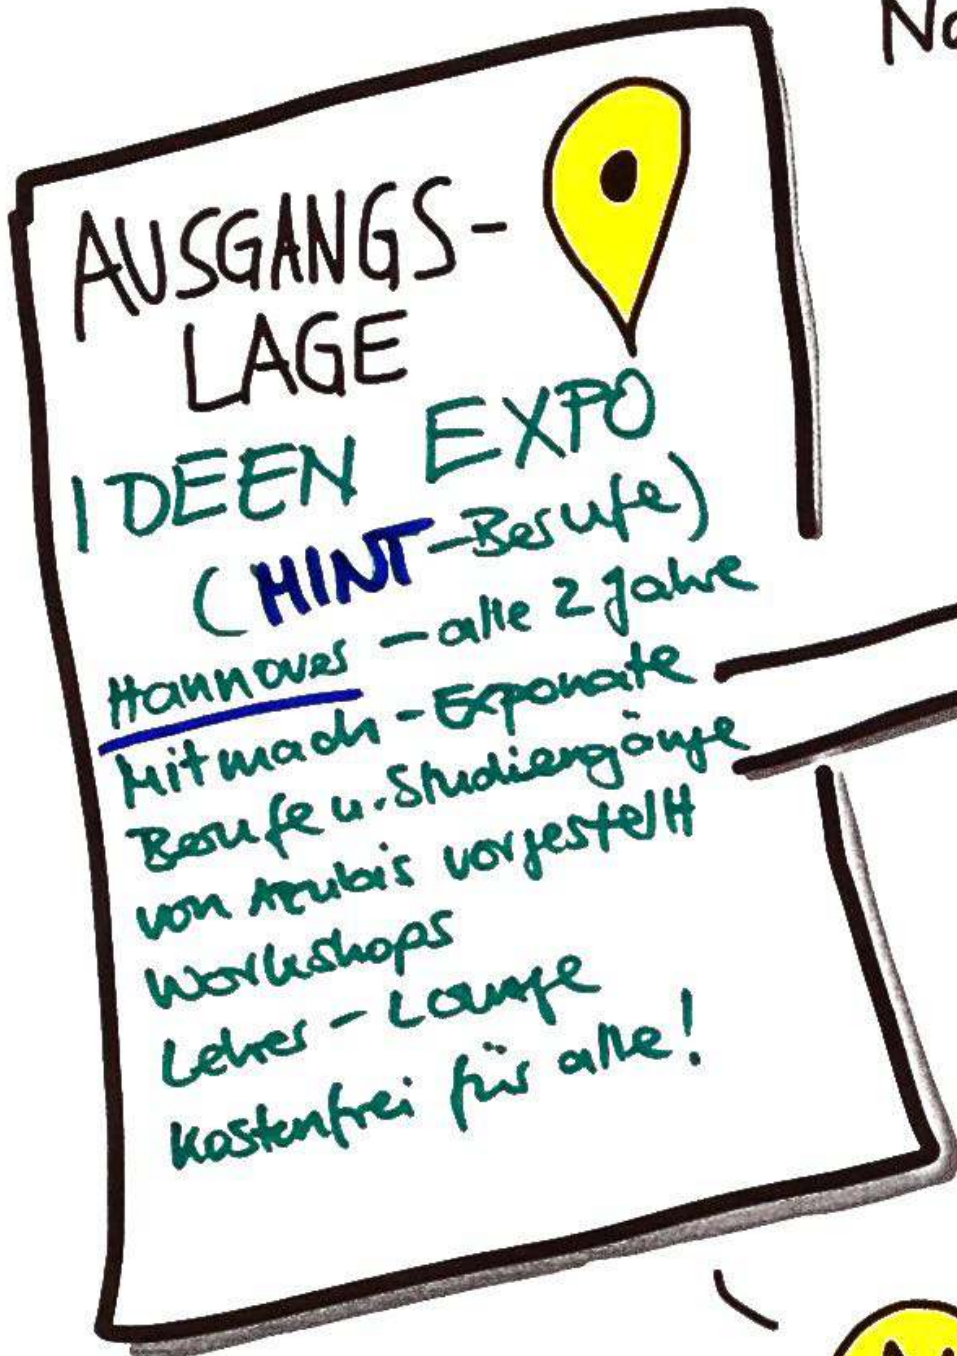 No
AUSGANGS-
LAGE
IDEEN EXPO
(MINT-Berufe)
Hannover - alle 2 Jahre
Mitmach-Exponate
Berufe u. Studiengänge
von Azubis vorgestellt
Workshops
Lehrer-Lounge
Kostenfrei für alle!